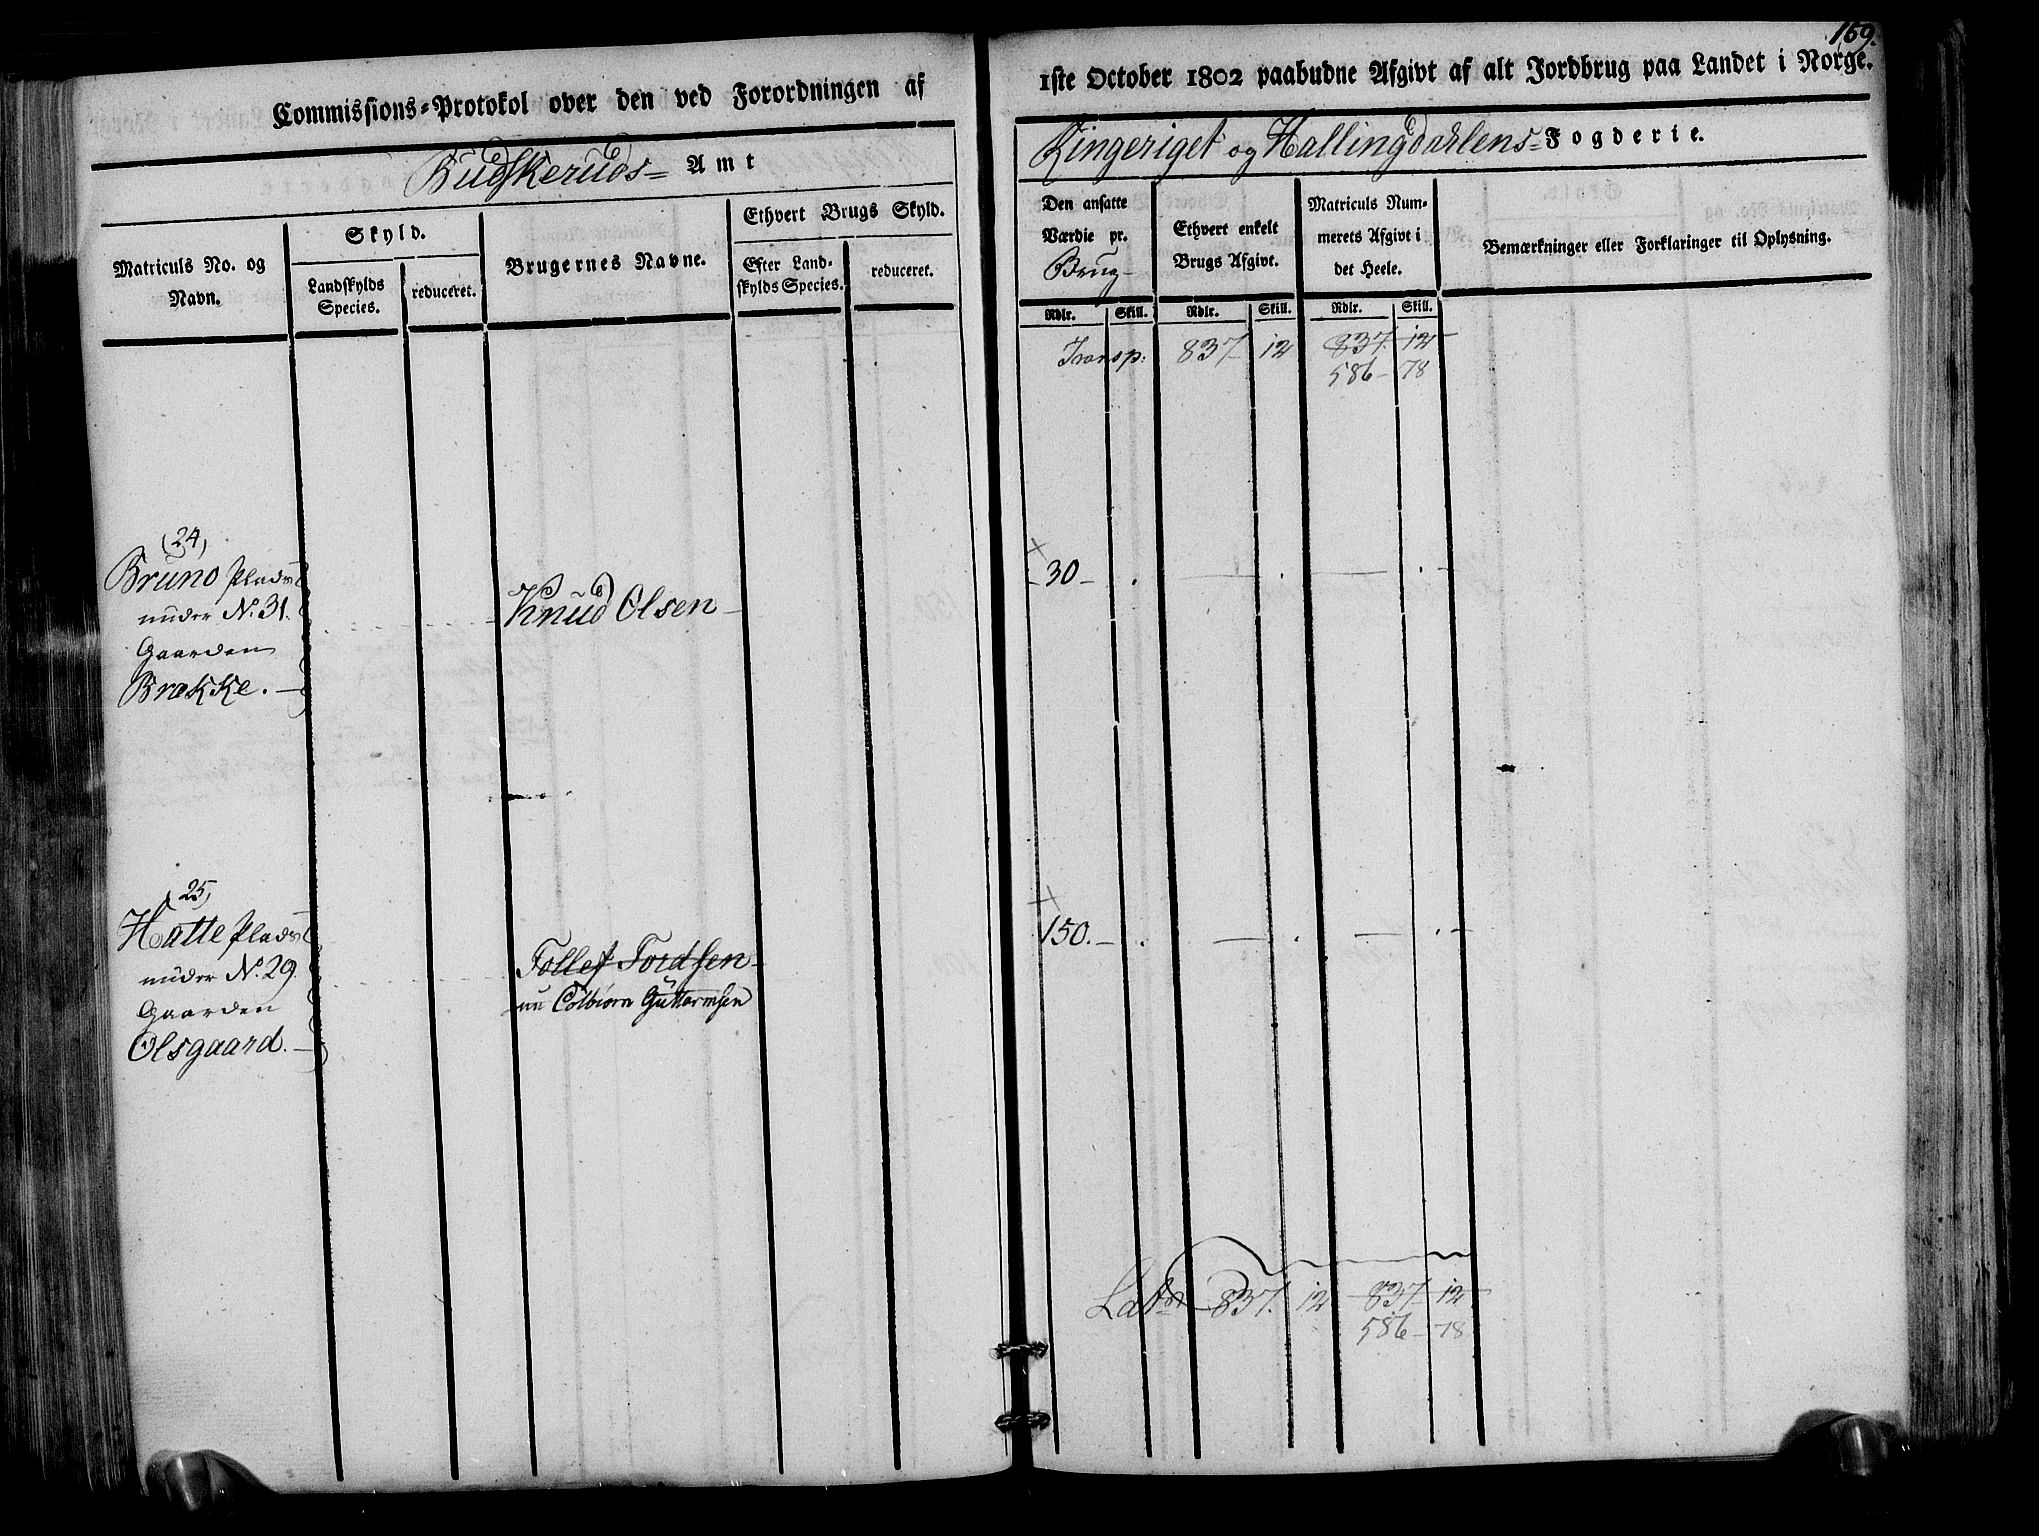 159.
Commissions=Protokol over den ved Forordningen af
1ste October 1802 paabudne Afgivt af alt Jordbrug paa Landet i Norge.
Budskeruds= Amt
Ringeriget og Hallingdahlens= Fogderie.
Matriculs No. og
Navn.
Skyld.
Landskylds
Species.
reduceret.
Brugernes Navne.
Ethvert Brugs Skyld.
Efter Land-
skylds Species.
reduceret.
Den ansatte
Værdie pr.
Brug-
Rdlr. Skill.
Ethvert enkelt
Brugs Afgivt.
Rdlr. Skill.
Matriculs Num-
merets Afgivt i
det Heele.
Rdlr. Skill.
Bemærkninger eller Forklaringer til Oplysning.
Transp: 837 12 837 12
586- 78
24,
Bruno Plads
under N. 31.
Gaarden
Brække.
Knud Olsen
30
25,
Hatte Plads
under N. 29.
Gaarden
Olsgaard.
Tollef Tordsen
nu Colbiørn Guttormsen
150.
Lat 837. 12 837 12
586- 78